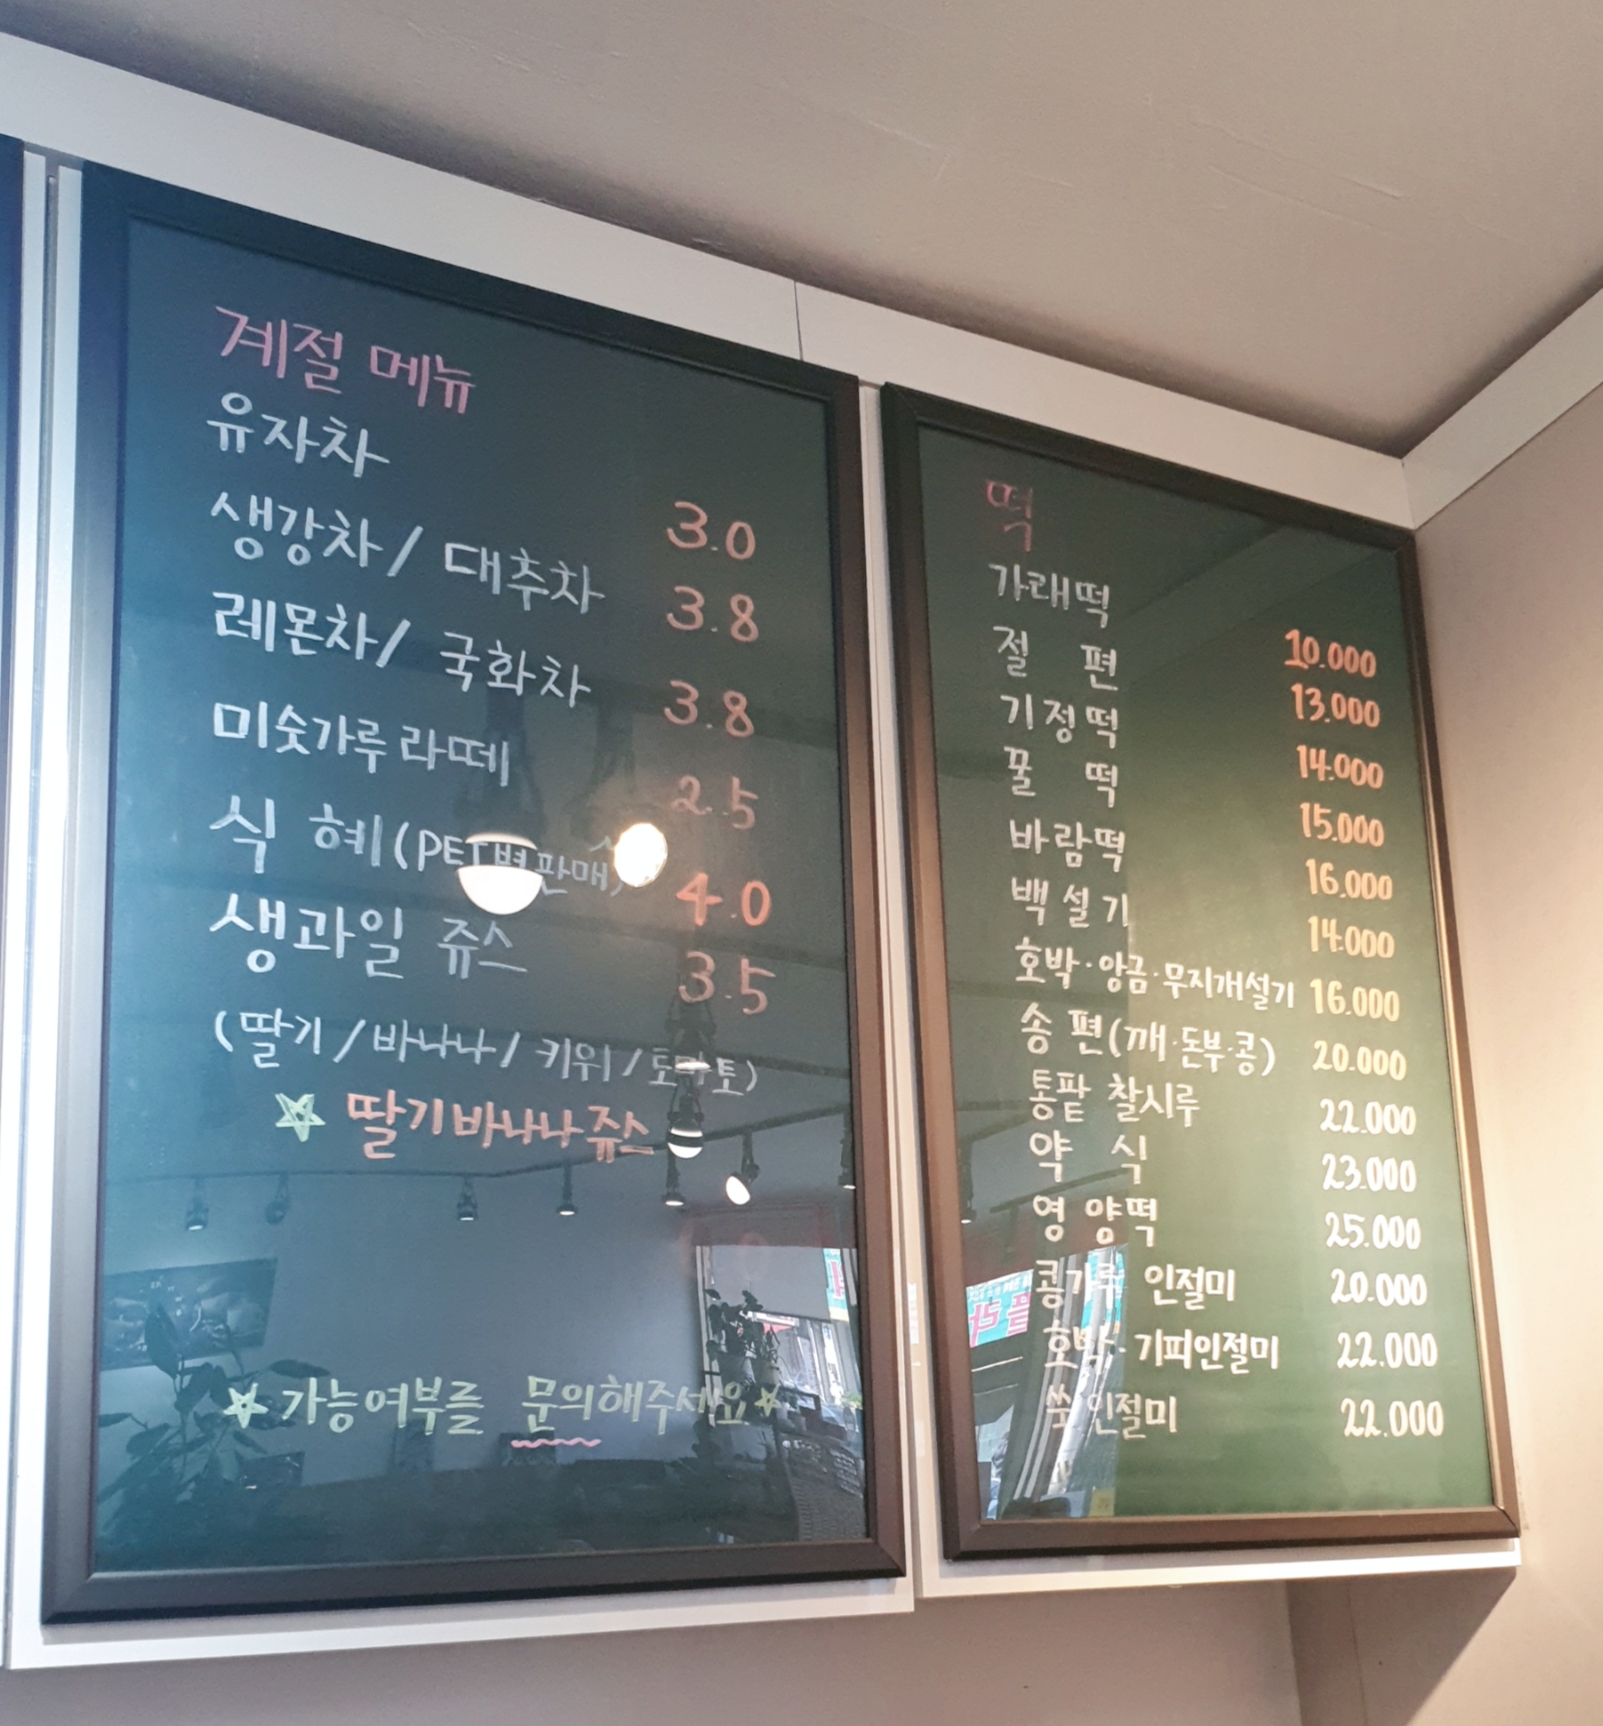 계절 메뉴
유자차 3.0
생강차/ 대추차 3.8
레몬차/ 국화차 3.8
미숫가루 라떼 2.5
식 혜(PET병판매) 4.0
생과일 쥬스 3.5
(딸기/바나나/키위/토마토)
☆ 딸기바나나쥬스
☆가능여부를 문의해주세요☆
떡
가래떡 10.000
절 편 13.000
기정떡 14.000
꿀 떡 15.000
바람떡 16.000
백설기 14.000
호박·앙금·무지개설기 16.000
송편(깨·돈부·콩) 20.000
통팥 찰시루 22.000
약 식 23.000
영양떡 25.000
콩가루 인절미 20.000
호박·기피인절미 22.000
쑥인절미 22.000